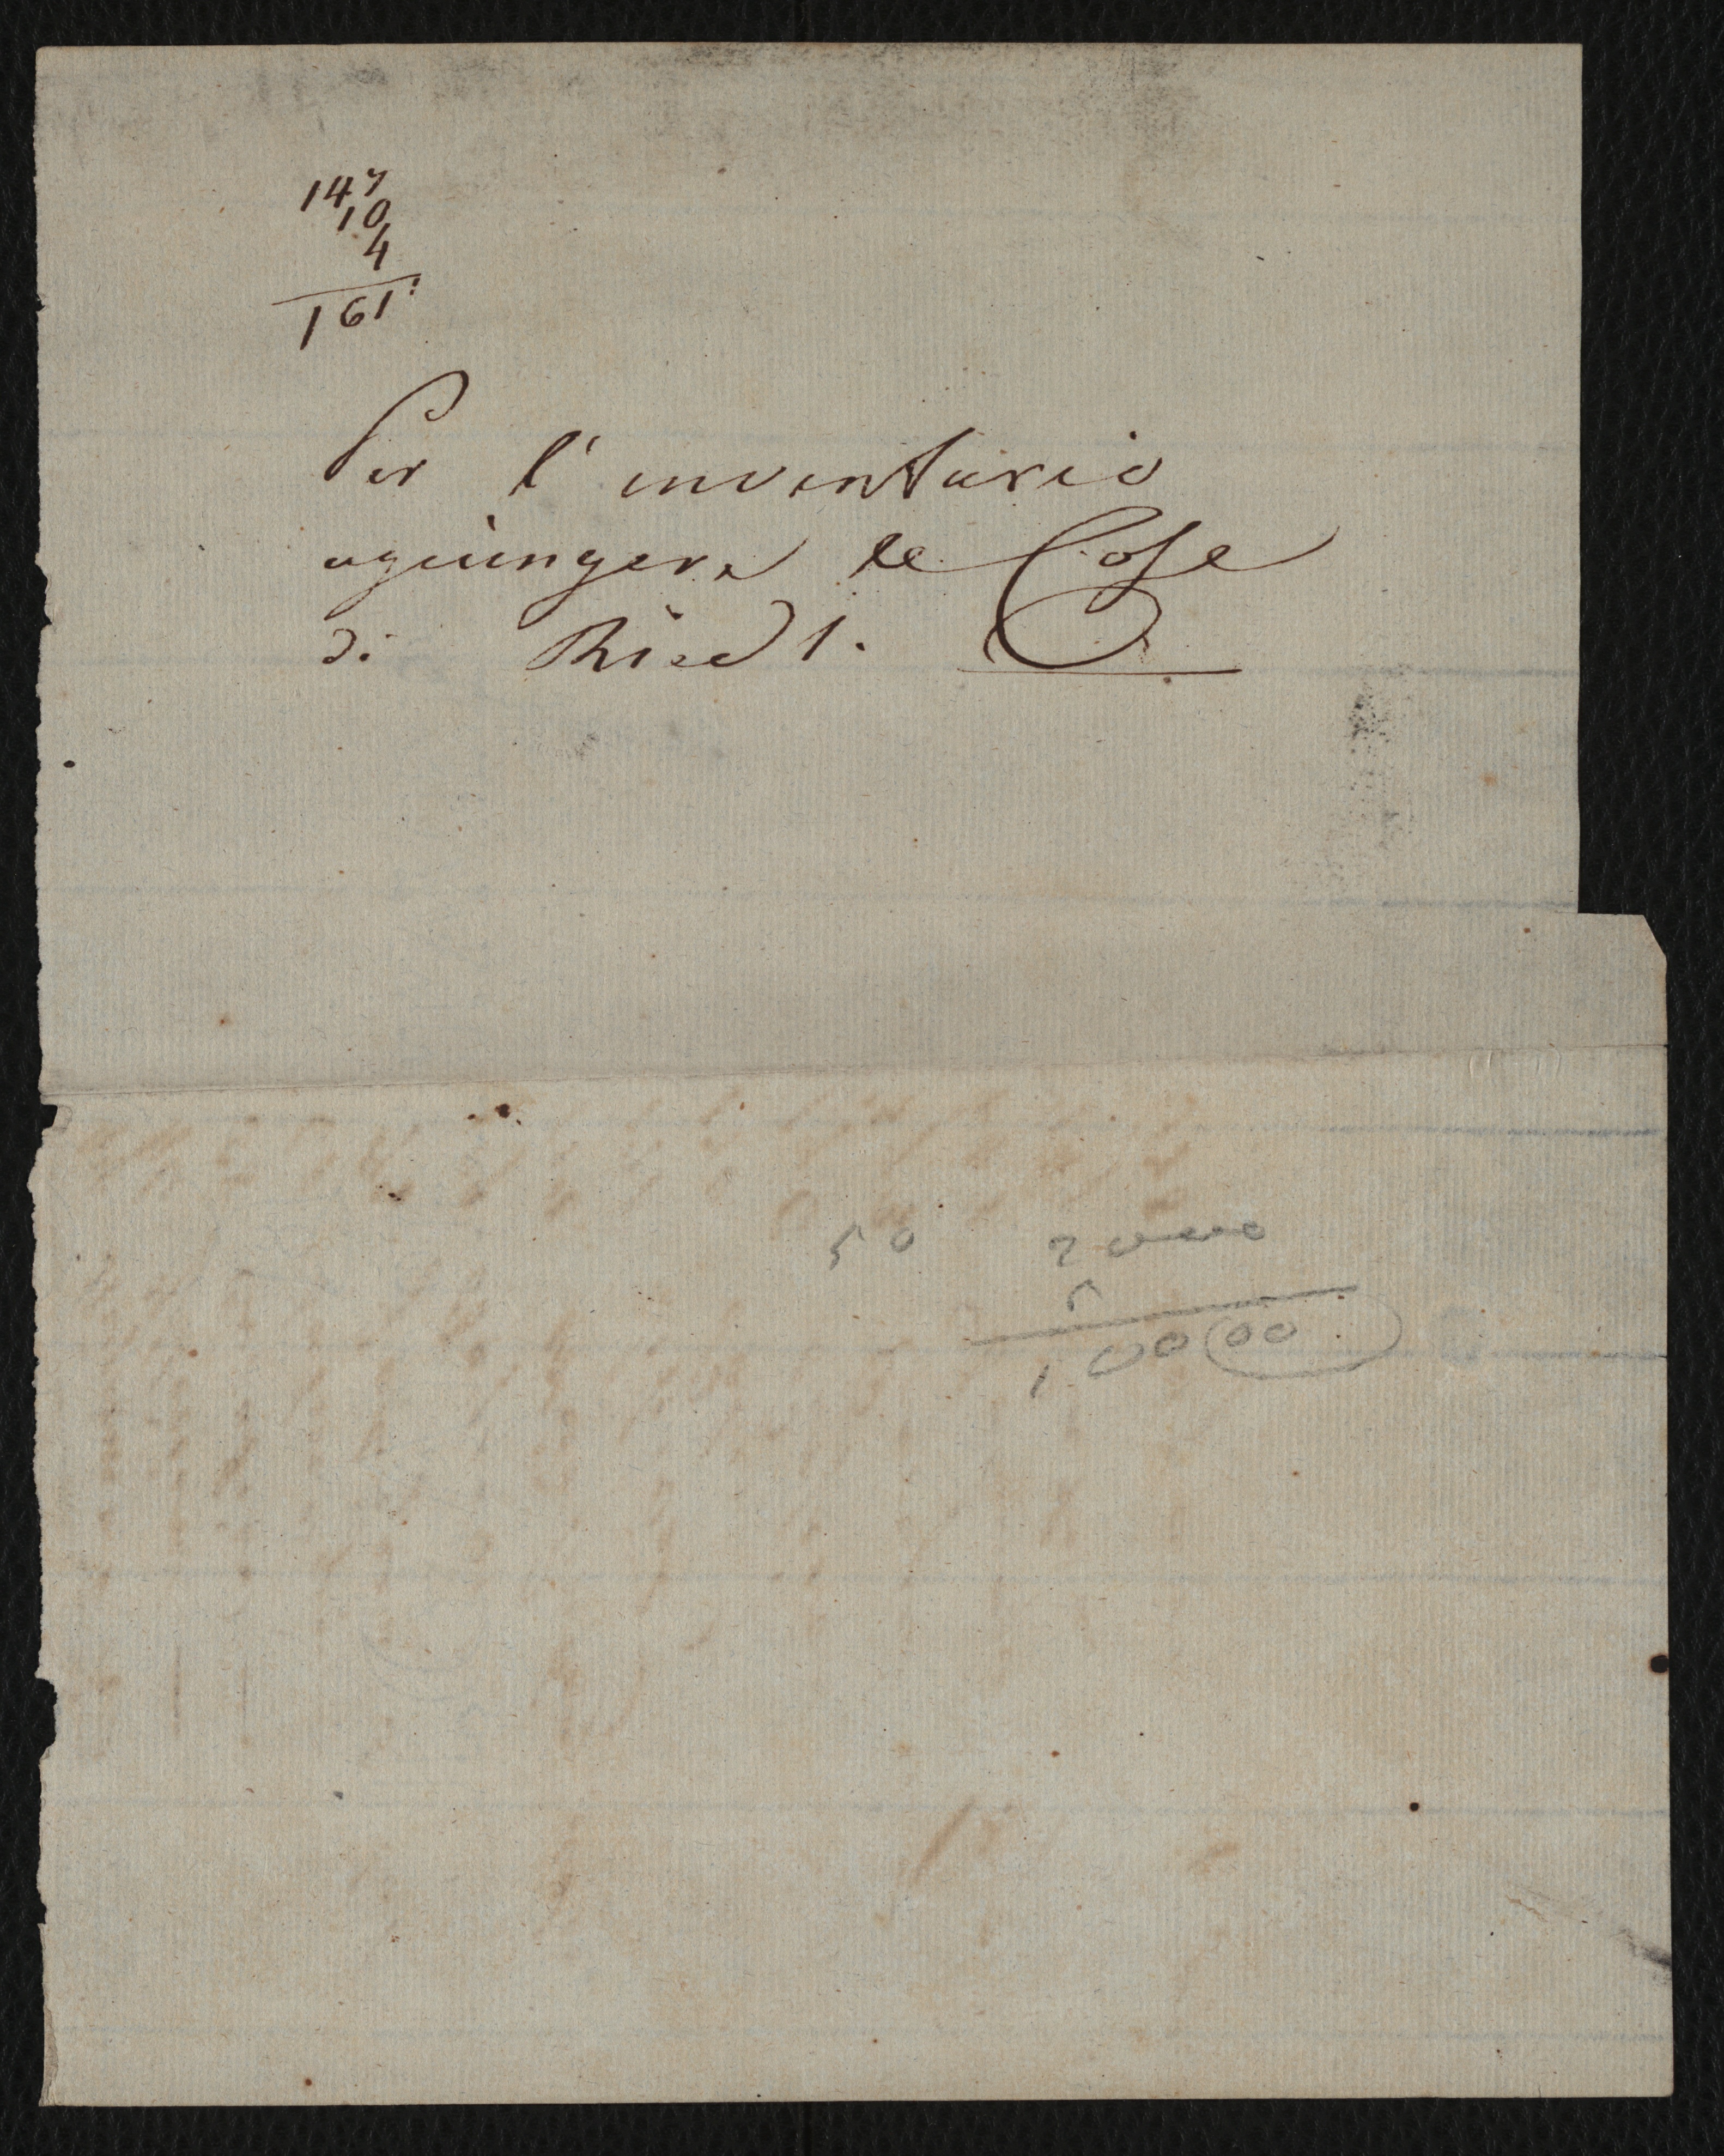 147
10
4
161:
Per l'inventario
agiungere le Cose
di Riedl.
50 20000
5
10000